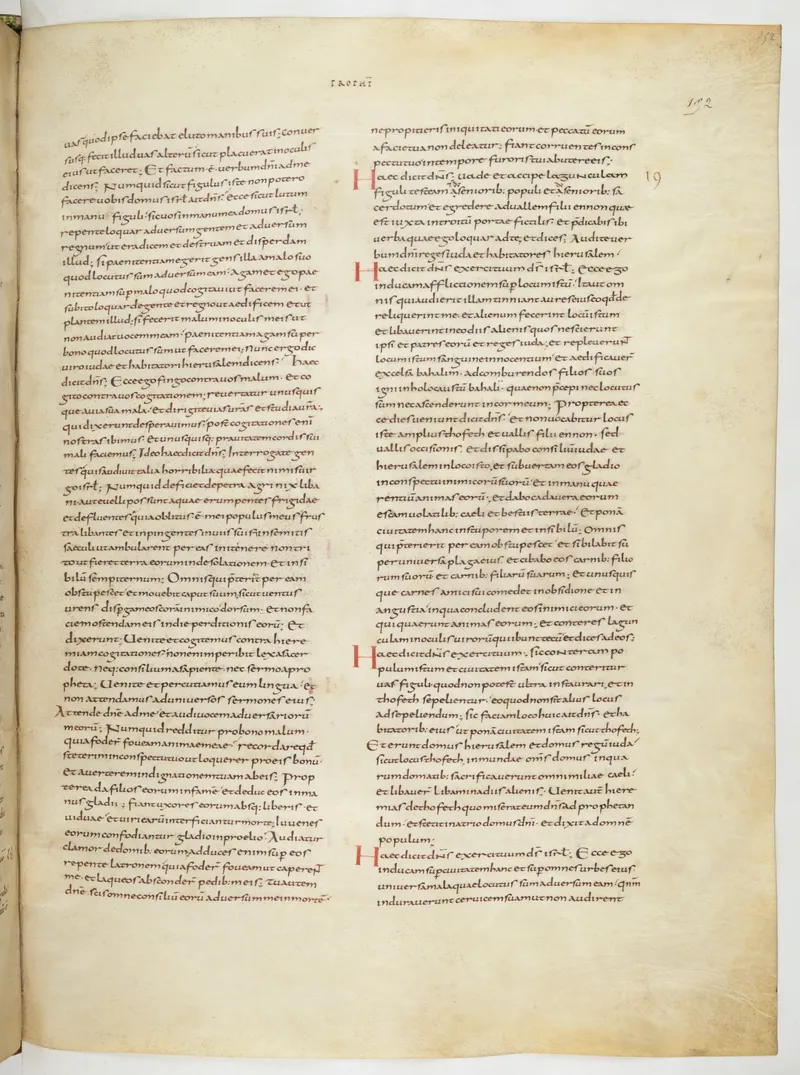 192
uas quod ipse faciebat eluto manibus suis; conuer
susq; fecit illud uas alterũ sicut placuerat inoculis
eius ut faceret; Et factum ẽ uerbum dñi adme
dicens; Numquid sicut figulus iste non potero
facere uobis domus isrl ait dñs; ecce sicut lutum
inmanu figuli sic uos inmanu mea domus isrl;
repente loquar aduersum gentem et aduersum
regnum ut eradicem et destruam et disperdam
illud; si paenitentiam egerit gens illa a malo suo
quod locutus sum aduersum eam; Agam et ego pae
nitentiam sup malo quod cogitaui ut facerem ei; et
subito loquar de gente et regno ut aedificem et ut
plantem illud; si fecerit malum inoculis meis ut
non audiat uocem meam; paenitentiam agam sup
bono quod locutus sum ut facerem ei; Nunc ergo dic
uiro iudae et habitatori hierusalem dicens; Haec
dicit dñs; Ecce ego fingo contra uos malum; et co
gito contra uos cogitationem; reuertatur unusquis
que a uia sua mala; et dirigite uias uras et studia ura;
qui dixerunt desperauimus; post cogitationes enĩ
nostras ibimus; et unusquisq; prauitatem cordis sui
mali faciemus; Ideo haec dicit dñs; Interrogate gen
tes quis audiuit talia horribilia quae fecit nimis uir
go isrl; Numquid deficiet de petra agri nix liba
ni; Aut euelli possunt aquae erumpentes frigidae
et defluentes; quia oblitus ẽ mei populus meus frus
tra libantes et inpingentes inuiis suis insemitis
saeculi ut ambularent per eas initinere non tri
to ut fieret terra eorum indesolationem et insi
bilũ sempiternum; Omnis qui praeterit per eam
obstupescet et mouebit caput suum; sicut uentus
urens dispgam eos coram inimico; dorsum et non fa
ciem ostendam eis indie perditionis eorũ; Et
dixerunt; Uenite et cogitemus contra hiere
miam cogitationes; non enim peribit lex a sacer
dote; neq; consilium a sapiente; nec sermo a pro
pheta; Uenite et percutiamus eum lingua; et
non attendamus ad uniuersos sermones eius;
Attende dñe adme et audi uocem aduersariorũ
meorũ; Numquid redditur pro bono malum;
quia foder foueam animae meae; recordare qd
steterim inconspectu tuo ut loquerer pro eis bonũ;
et auerterem indignationem tuam abeis; Prop
terea da filios eorum infamẽ et deduc eos inma
nus gladii; fiant uxores eorum absq; liberis et
uiduae; et uiri earũ interficiantur morte; Iuuenes
eorum confodiantur gladio inproelio; Audiatur
clamor dedomib; eorum adduces enim sup eos
repente latronem quia foder foueam ut caperent
me; et laqueos absconder pedib; meis; Tu autem
dñe scis omne consiliũ eorũ aduersum me inmortẽ;
ne propitieris iniquitati eorum et peccatũ eorum
a facie tua non deleatur; fiant corruentes incons
pectu tuo intempore furoris tui abutere eis;
Haec dicit dñs; uade et accipe lagunculam
19
figuli testeam a seniorib; populi et a seniorib; sa
cerdotum et egredere aduallem filii ennon quae
est iuxta introitũ portae fictilis; et pdicabis ibi
uerba quae ego loquar adte; et dices; Audite uer
bum dñi reges iuda et habitatores hierusalem;
Haec dicit dñs exercituum ds isrl; Ecce ego
inducam afflictionem sup locum istũ; Ita ut om
nis qui audierit illam tinniant aures eius eo qd de
reliquerint me; et alienum fecerint locũ istum
et libauerint ineo diis alienis quos nescierunt
ipsi et patres eorũ et reges iuda; et repleuerunt
locum istum sanguine innocentium; et aedificauer
excelsa bahalim; adcomburendos filios suos
igni inholocaustũ bahali; quae non pcepi nec locutus
sum nec ascenderunt incor meum; Propterea ec
ce dies ueniunt dicit dñs; et non uocabitur locus
iste amplius thofeth et uallis filii ennon; sed
uallis occisionis; et dissipabo consiliũ iudae et
hierusalem inloco isto; et subuertam eos gladio
inconspectu inimicorũ suorũ; et inmanu quae
rentiũ animas eorũ; et dabo cadauera eorum
escam uolatilib; caeli et bestiis terrae; et ponã
ciuitatem hanc instuporem et insibilũ; Omnis
qui pterierit per eam obstupescet et sibilabit sũ
per uniuersa plaga eius et cibabo eos carnib; filio
rum suorũ et carnib; filiarũ suarum; et unusquis
que carnes amici sui comedet inobsidione et in
angustia inqua concludent eos inimici eorum et
qui quaerunt animas eorum; et conteres lagun
culam inoculis uirorũ qui ibunt tecũ et dices adeos;
Haec dicit dñs exercituum; sic conteram po
pulum istum et ciuitatem istam sicut conteritur
uas figuli quod non potest ultra instaurari; et in
thofeth sepelientur; eo quod non sit alius locus
adsepeliendum; sic faciam loco huic ait dñs; et ha
bitatorib; eius; ut ponã ciuitatem istam sicut thofeth;
Et erunt domus hierusalem et domus regũ iuda
sicut locus thofeth, inmundae; oms domus inqua
rum domatib; sacrificauerunt omni miliciae caeli;
et libauer libamina diis alienis; Uenit aut hiere
mias dethofeth quo miserat eum dñs adprophetan
dum; et stetit inatrio domus dñi; et dixit adomnẽ
populum;
Haec dicit dñs exercituum ds isrl; Ecce ego
inducam sup ciuitatem hanc et sup omnes urbes eius
uniuersa mala quae locutus sum aduersum eam; qnm
indurauerunt ceruicem suam ut non audirent